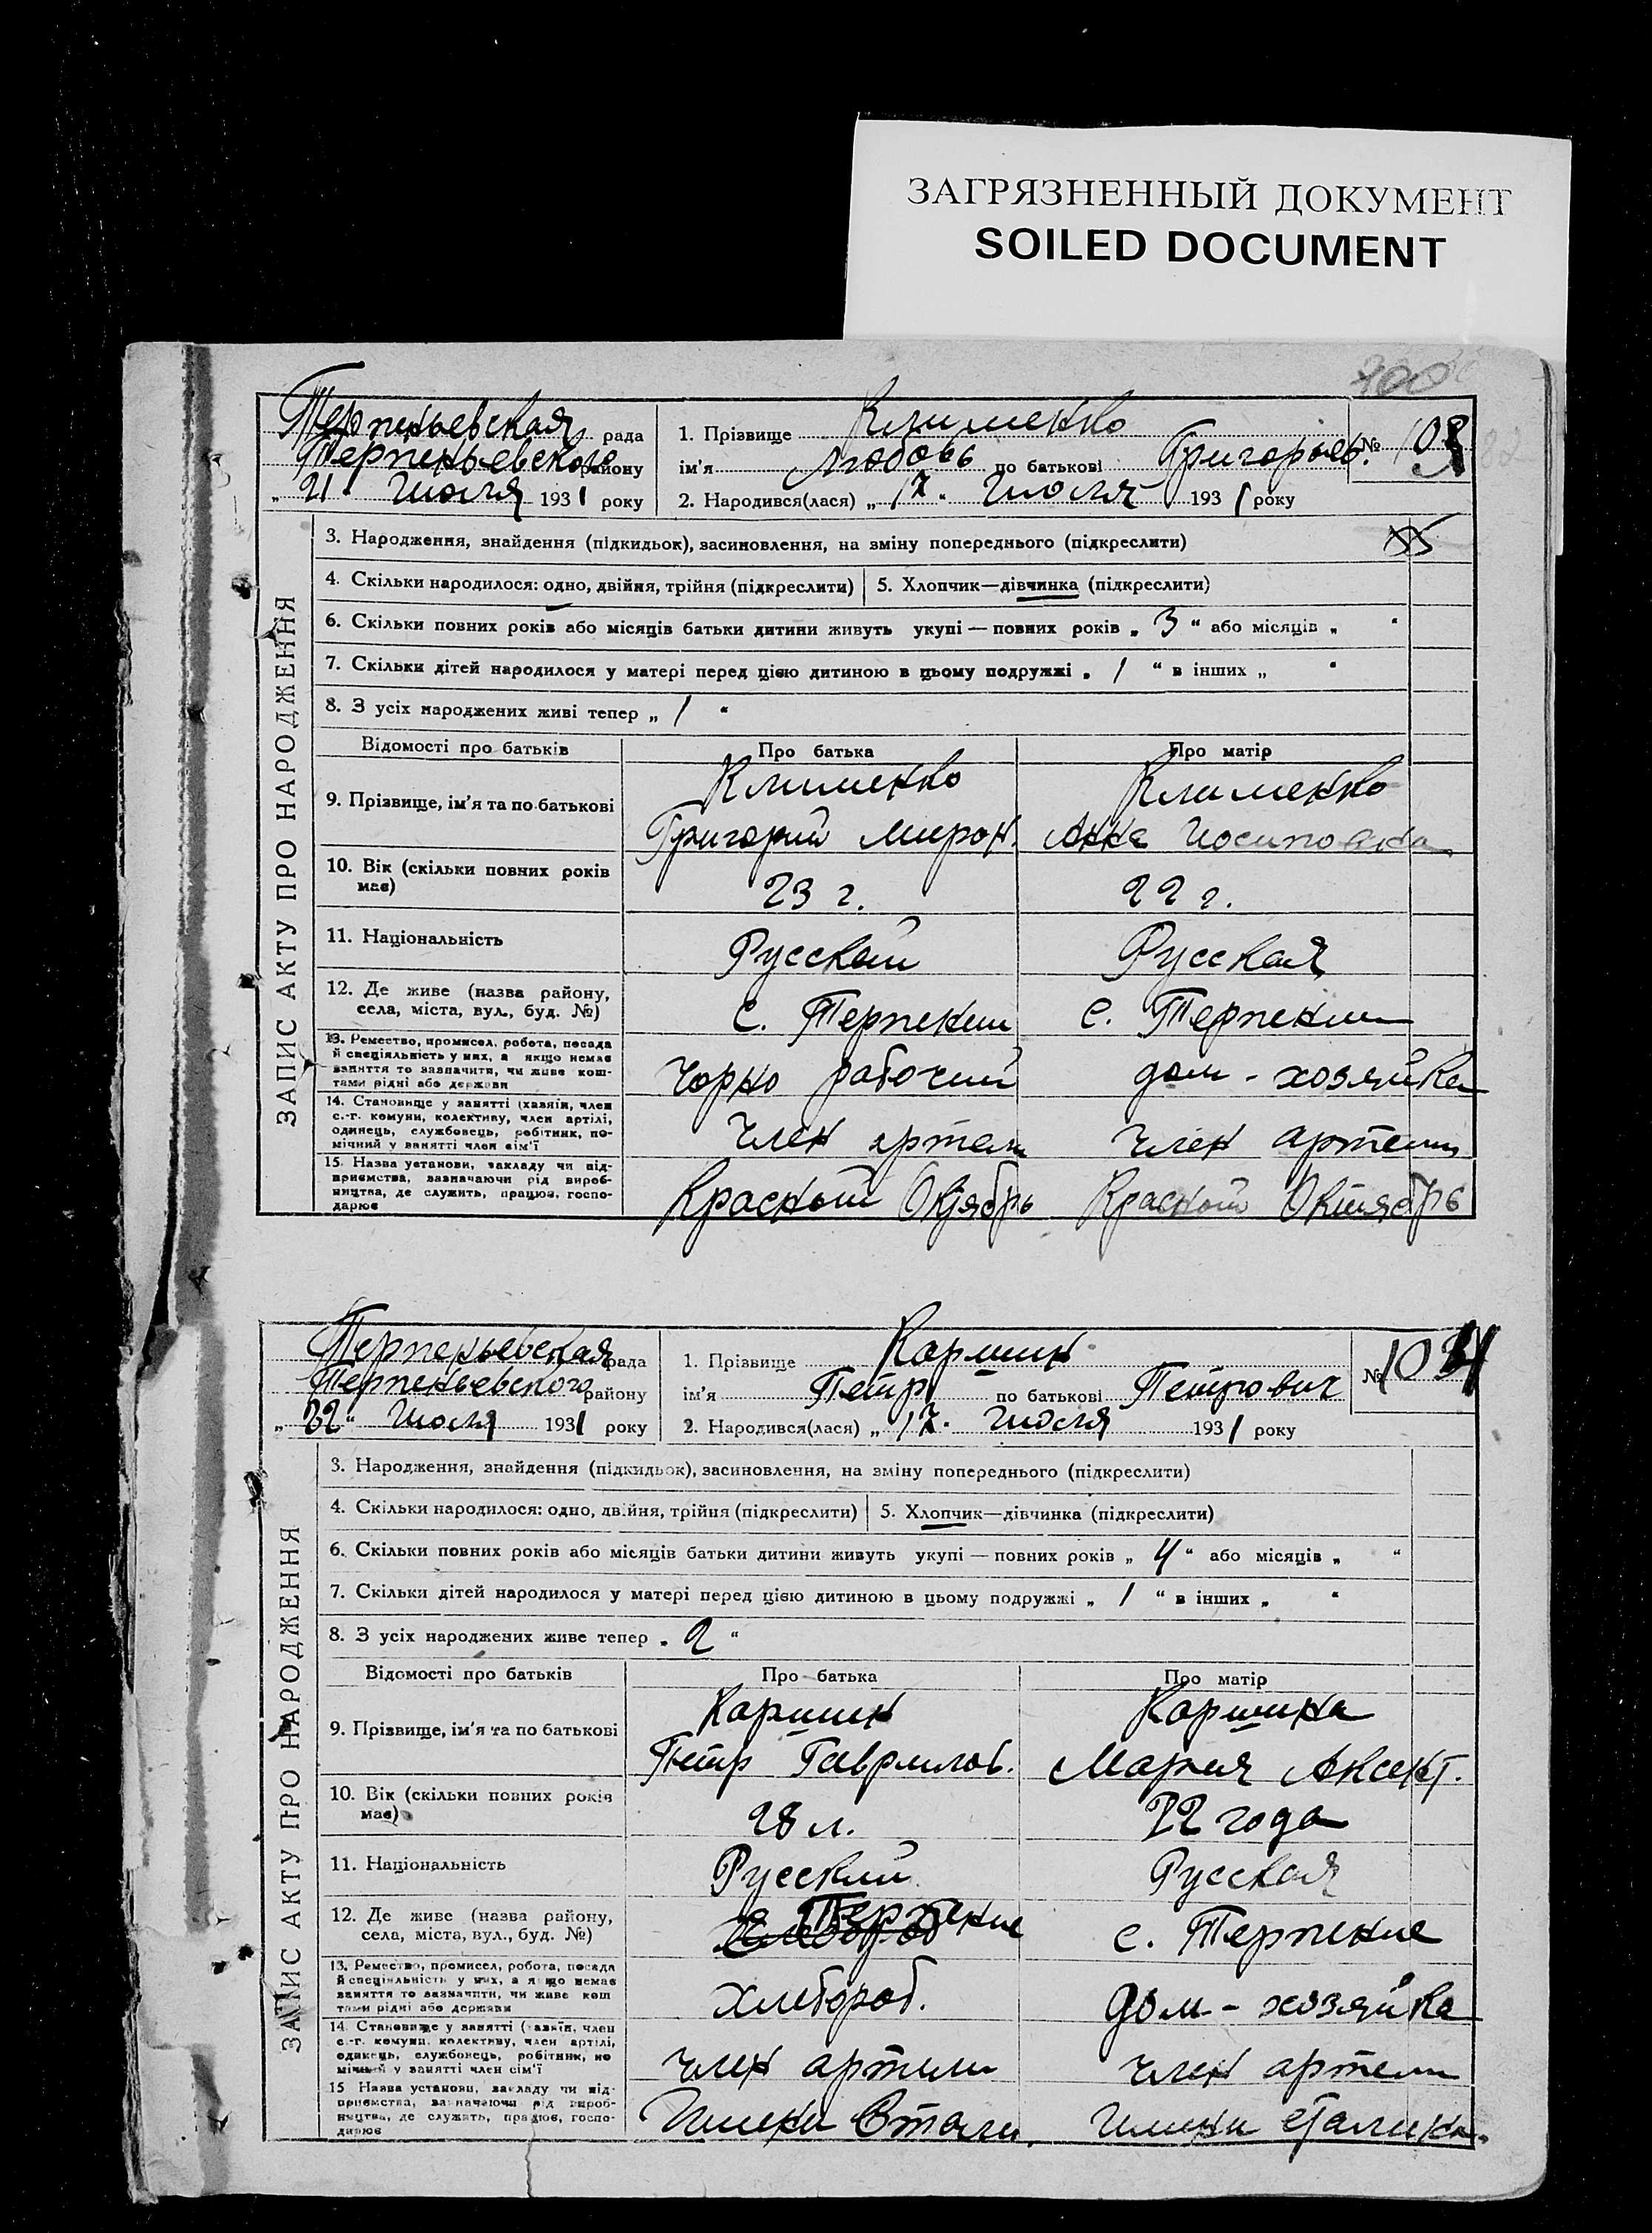 ЗАГРЯЗНЕННЫЙ ДОКУМЕНТ
SOILED DOCUMENT
100
ЗАПИС АКТУ ПРО НАРОДЖЕННЯ
Терпеньевская рада
Терпеньевского району
„ 21 " Июля 1931 року
1. Прізвище Клименко
ім'я Любовь по батькові Григорьев.
2. Народився(лася) „ 17 " Июля 1931 року
№ 103
3. Народження, знайдення (підкидьок), засиновлення, на зміну попереднього (підкреслити)
4. Скільки народилося: одно, двійня, трійня (підкреслити) 5. Хлопчик—дівчинка (підкреслити)
6. Скільки повних років або місяців батьки дитини живуть укупі — повних років „ 3 “ або місяців „ “
7. Скільки дітей народилося у матері перед цією дитиною в цьому подружжі „ 1 “ в інших „ “
8. З усіх народжених живі тепер „ 1 “
Відомості про батьків Про батька Про матір
9. Прізвище, ім'я та по батькові Клименко Клименко
Григорий Мирон. Анна Иосиповна
10. Вік (скільки повних років має) 23 г. 22 г.
11. Національність Русский Русская
12. Де живе (назва району, села, міста, вул., буд. №) с. Терпение с. Терпение
13. Ремество, промисел, робота, посада й спеціяльність у них, а якщо немає заняття то зазначити, чи живе коштами рідні або держави Чорно рабочий дом-хозяйка
14. Становище у занятті (хазяїн, член с.-г. комуни, колективу, член артілі, одинець, службовець, робітник, помічний у занятті член сім'ї Член артели Член артели
15. Назва установи, закладу чи підприємства, зазначаючи рід виробництва, де служить, працює, господарює Красный Октябрь Красный Октябрь
ЗАПИС АКТУ ПРО НАРОДЖЕННЯ
Терпеньевская рада
Терпеньевского району
„ 22 " Июля 1931 року
1. Прізвище Каршин
ім'я Петр по батькові Петрович
2. Народився(лася) „ 17 " Июля 1931 року
№ 104
3. Народження, знайдення (підкидьок), засиновлення, на зміну попереднього (підкреслити)
4. Скільки народилося: одно, двійня, трійня (підкреслити) 5. Хлопчик—дівчинка (підкреслити)
6. Скільки повних років або місяців батьки дитини живуть укупі — повних років „ 4 “ або місяців „ “
7. Скільки дітей народилося у матері перед цією дитиною в цьому подружжі „ 1 “ в інших „ “
8. З усіх народжених живе тепер „ 2 “
Відомості про батьків Про батька Про матір
9. Прізвище, ім'я та по батькові Каршин Каршина
Петр Гаврилов. Мария Аксент.
10. Вік (скільки повних років має) 28 л. 22 года
11. Національність Русский Русская
12. Де живе (назва району, села, міста, вул., буд. №) с. Терпение с. Терпение
13. Ремество, промисел, робота, посада й спеціяльність у них, а якщо немає заняття то зазначити, чи живе коштами рідні або держави хлебороб. дом-хозяйка
14. Становище у занятті (хазяїн, член с.-г. комуни, колективу, член артілі, одинець, службовець, робітник, помічний у занятті член сім'ї член артели член артели
15 Назва установи, закладу чи підприємства, зазначаючи рід виробництва, де служить, працює, господарює Имени Стали. Имени Сталина.